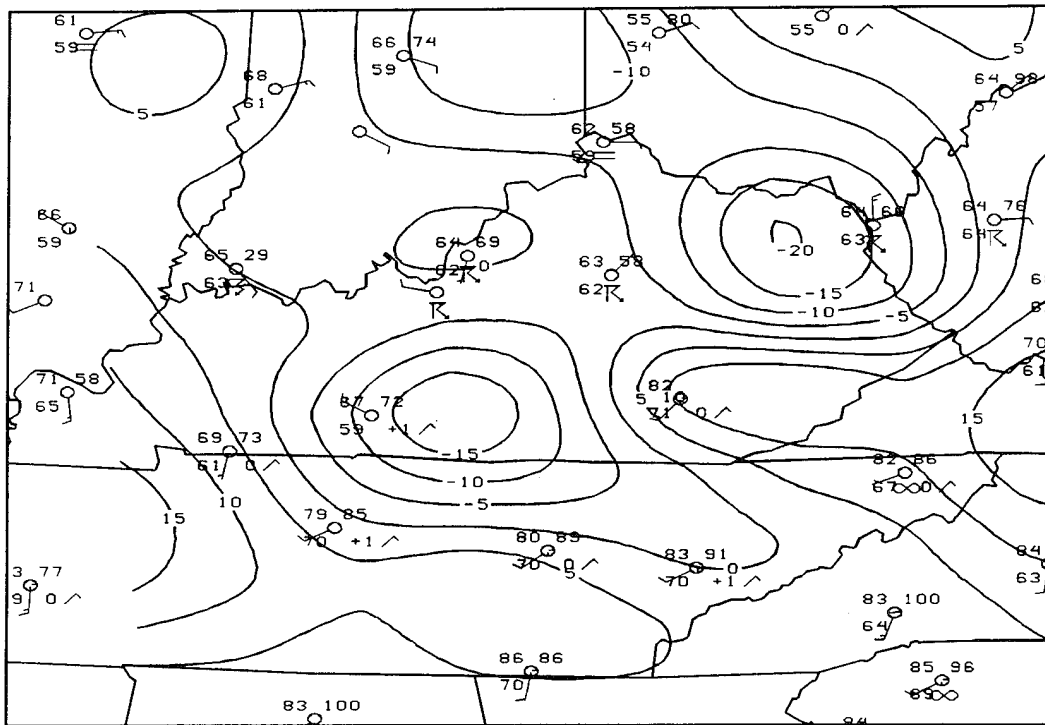 61
59
66 74
59
5
68
61
55 80
54
-10
55 0
5
64 98
57
62 58
59
86
59
65 29
63
64 69
0
62
63 58
62
64 66
63
-20
-15
-10
-5
64 76
64
71
71 58
65
87 72
59 +1
-15
-10
-5
82
5 1
71 0
70
61
15
69 73
61 0
10
15
82 86
67 0
79 85
70 +1
80 89
70 0
5
83 91
0
70 +1
84
63
3 77
9 0
83 100
64
86 86
70
85 96
69
83 100
84